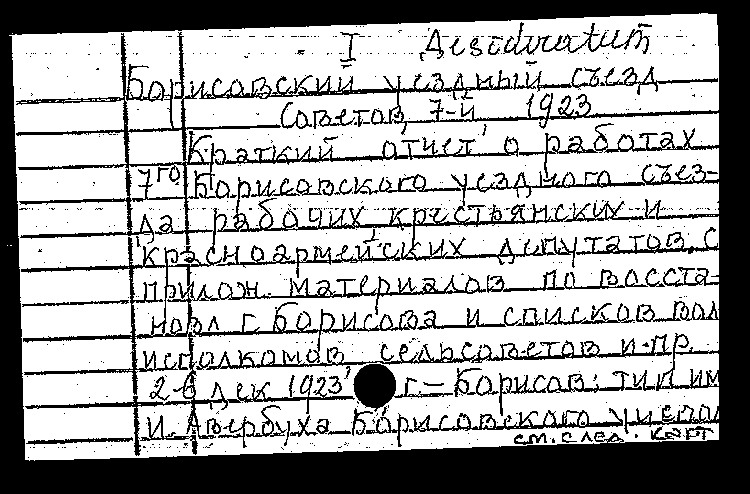 I Desideratum
Борисовский уездный съезд
Советов, 7-й, 1923
Краткий отчет о работах
7го Борисовского уездного съез-
да рабочих, крестьянских и
красноармейских депутатов, с
прилож. материалов по восста-
новл г. Борисова и списков вол
исполкомов сельсоветов и пр.
2-6 дек 1923 г. — Борисов: тип им
И. Авербуха Борисовского уиспол
см. след. карт